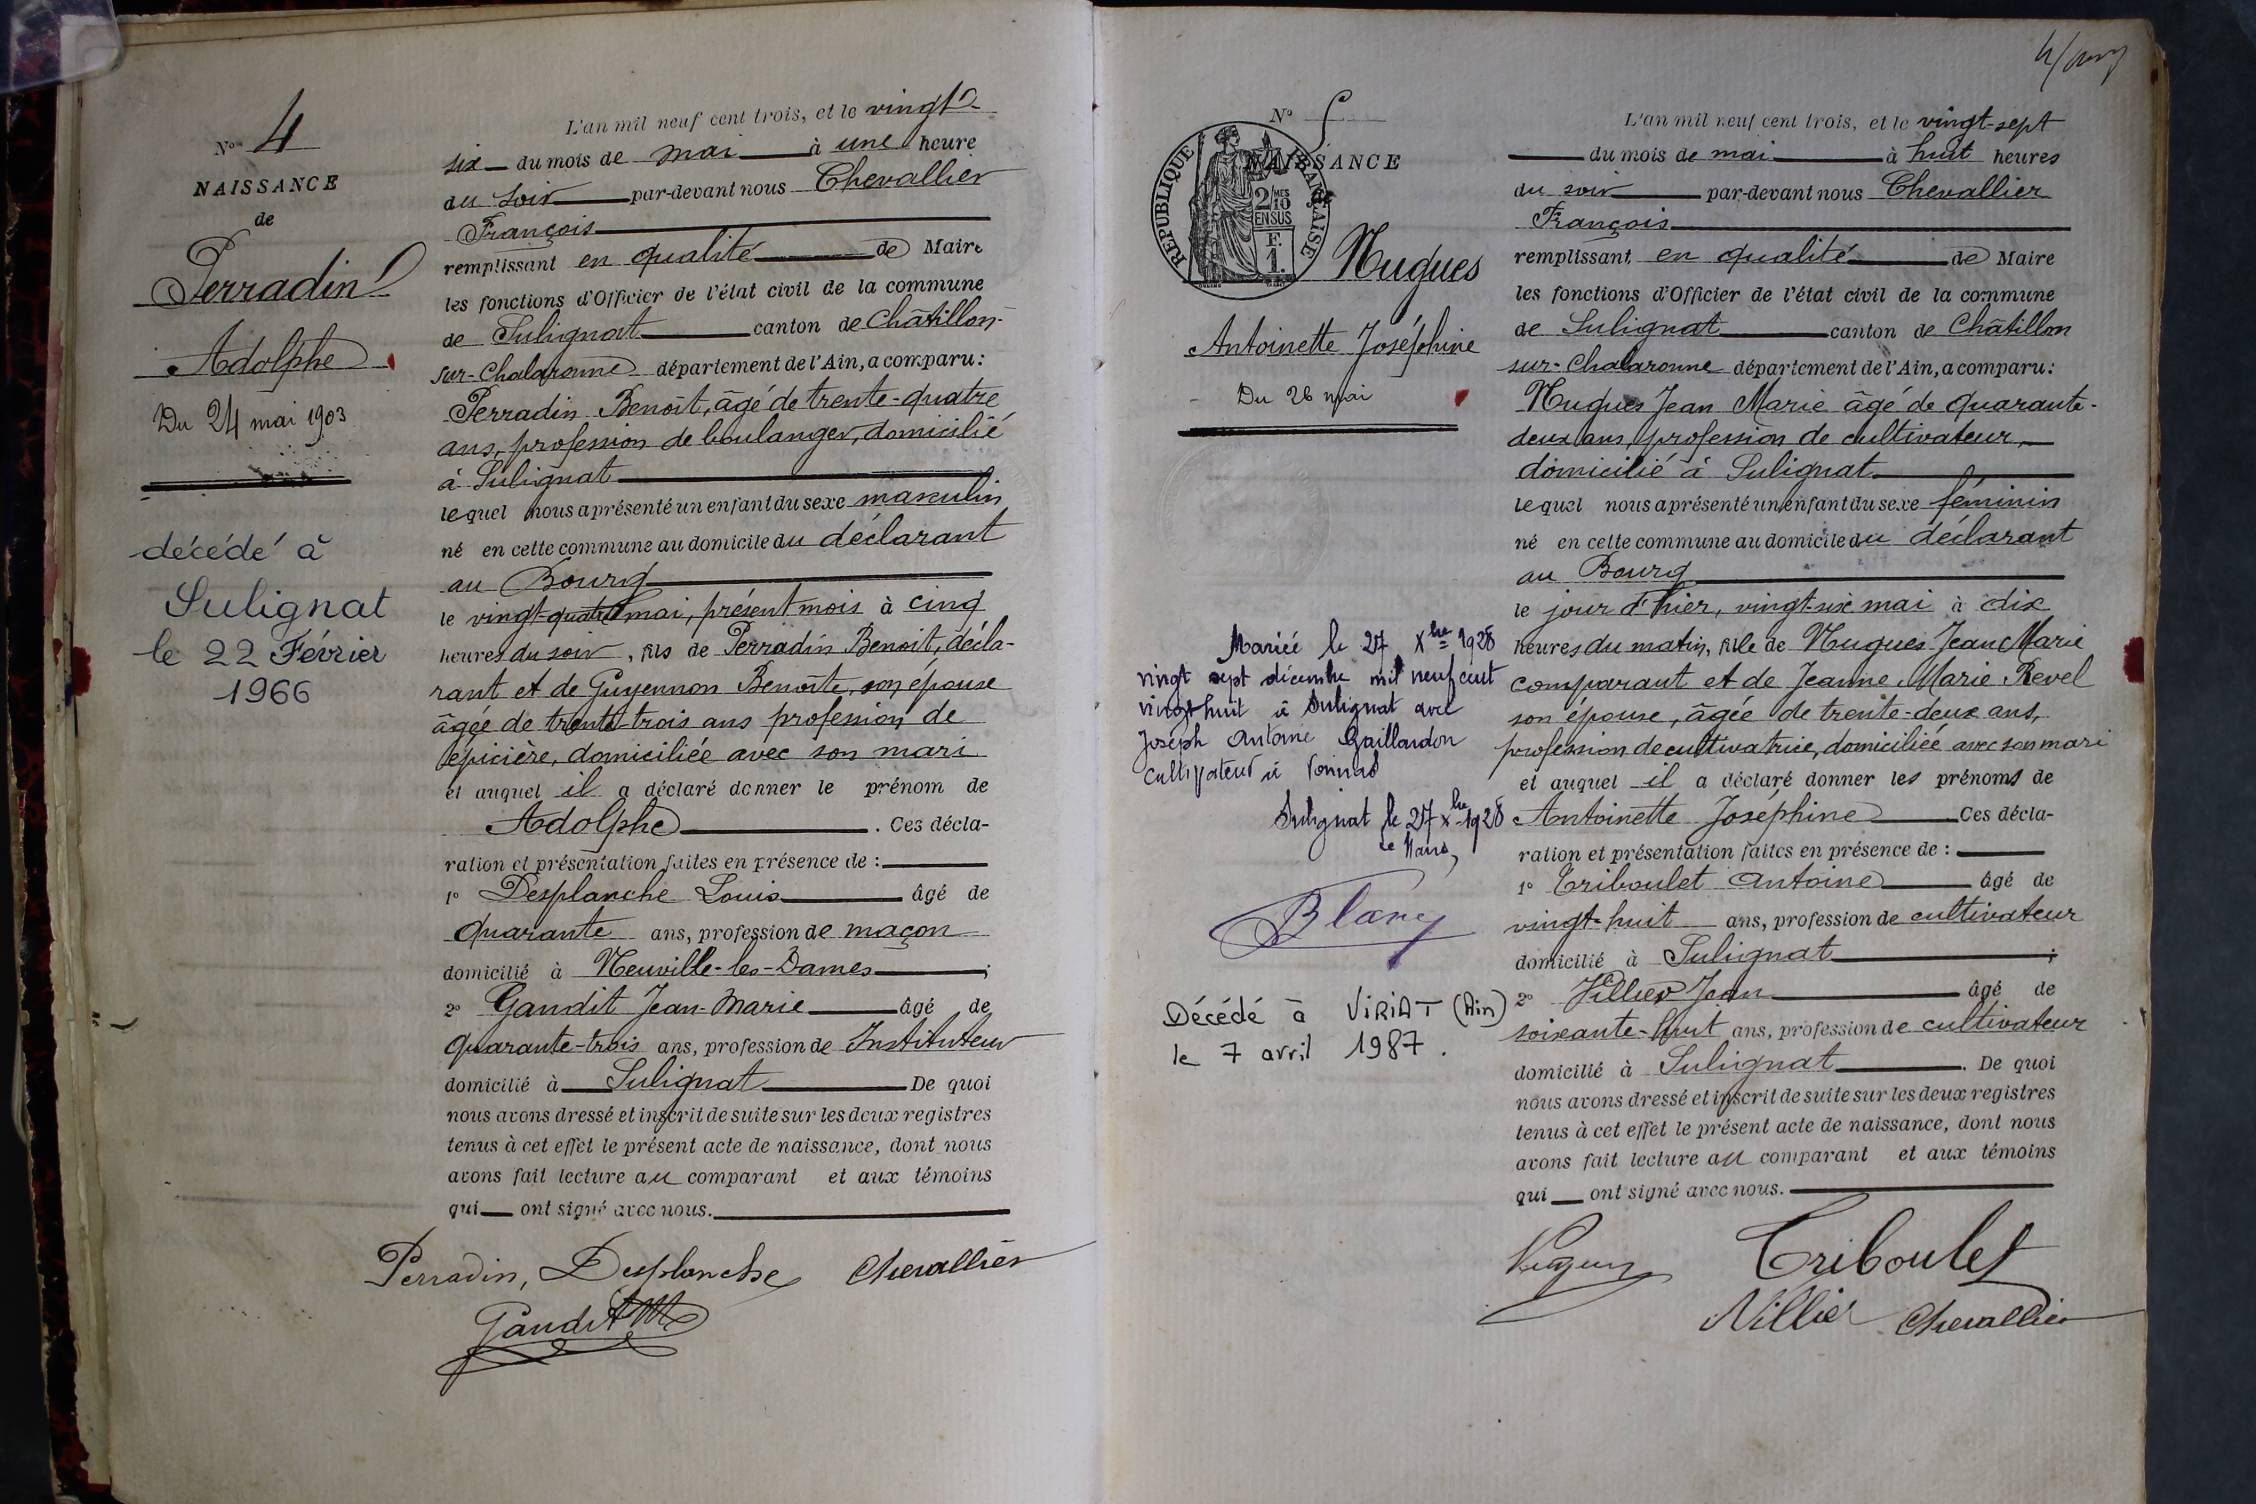 N° 4
NAISSANCE
de
Perradin
Adolphe
Du 24 mai 1903
décédé à
Sulignat
le 22 Février
1966
L'an mil neuf cent trois, et le vingt-
six du mois de mai à une heure
du soir par-devant nous Chevallier
François
remplissant en qualité de Maire
les fonctions d'Officier de l'état civil de la commune
de Sulignat canton de Châtillon-
sur-Chalaronne département de l'Ain, a comparu:
Perradin Benoît, âgé de trente-quatre
ans, profession de boulanger, domicilié
à Sulignat
lequel nous a présenté un enfant du sexe masculin
né en cette commune au domicile du déclarant
au Bourg
le vingt-quatre mai, présent mois à cinq
heures du soir, fils de Perradin Benoit, décla-
rant et de Guyennon Benoîte, son épouse
âgée de trente-trois ans profession de
épicière, domiciliée avec son mari
et auquel il a déclaré donner le prénom de
Adolphe . Ces décla-
ration et présentation faites en présence de :
1° Desplanche Louis âgé de
quarante ans, profession de maçon
domicilié à Neuville-les-Dames ;
2° Gandit Jean-Marie âgé de
quarante-trois ans, profession de Instituteur
domicilié à Sulignat De quoi
nous avons dressé et inscrit de suite sur les deux registres
tenus à cet effet le présent acte de naissance, dont nous
avons fait lecture au comparant et aux témoins
qui ont signé avec nous.
Perradin, Desplanche Chevallier
Gandit JM
N° 5
NAISSANCE
de
RÉPUBLIQUE FRANÇAISE
2/10 MES
EN SUS
F.
1.
Nugues
Antoinette Joséphine
Du 26 mai
Mariée le 27 Xbre 1928
vingt sept décembre mil neuf cent
vingt huit à Sulignat avec
Joseph Antoine Gaillardon
cultivateur à Vonnas
Sulignat le 27 Xbre 1928
le Maire,
Blanc
Décédé à VIRIAT (Ain)
le 7 avril 1987.
L'an mil neuf cent trois, et le vingt-sept
du mois de mai à huit heures
du soir par-devant nous Chevallier
François
remplissant en qualité de Maire
les fonctions d'Officier de l'état civil de la commune
de Sulignat canton de Châtillon
sur-Chalaronne département de l'Ain, a comparu:
Nugues Jean Marie âgé de quarante-
deux ans, profession de cultivateur,
domicilié à Sulignat
lequel nous a présenté un enfant du sexe féminin
né en cette commune au domicile du déclarant
au Bourg
le jour d'hier, vingt-six mai à dix
heures du matin, fille de Nugues Jean Marie
comparant et de Jeanne Marie Revel
son épouse, âgée de trente-deux ans,
profession de cultivatrice, domiciliée avec son mari
et auquel il a déclaré donner les prénoms de
Antoinette Joséphine Ces décla-
ration et présentation faites en présence de :
1° Triboulet Antoine âgé de
vingt-huit ans, profession de cultivateur
domicilié à Sulignat ;
2° Villier Jean âgé de
soixante-huit ans, profession de cultivateur
domicilié à Sulignat . De quoi
nous avons dressé et inscrit de suite sur les deux registres
tenus à cet effet le présent acte de naissance, dont nous
avons fait lecture au comparant et aux témoins
qui ont signé avec nous.
Nugues Triboulet
Villier Chevallier